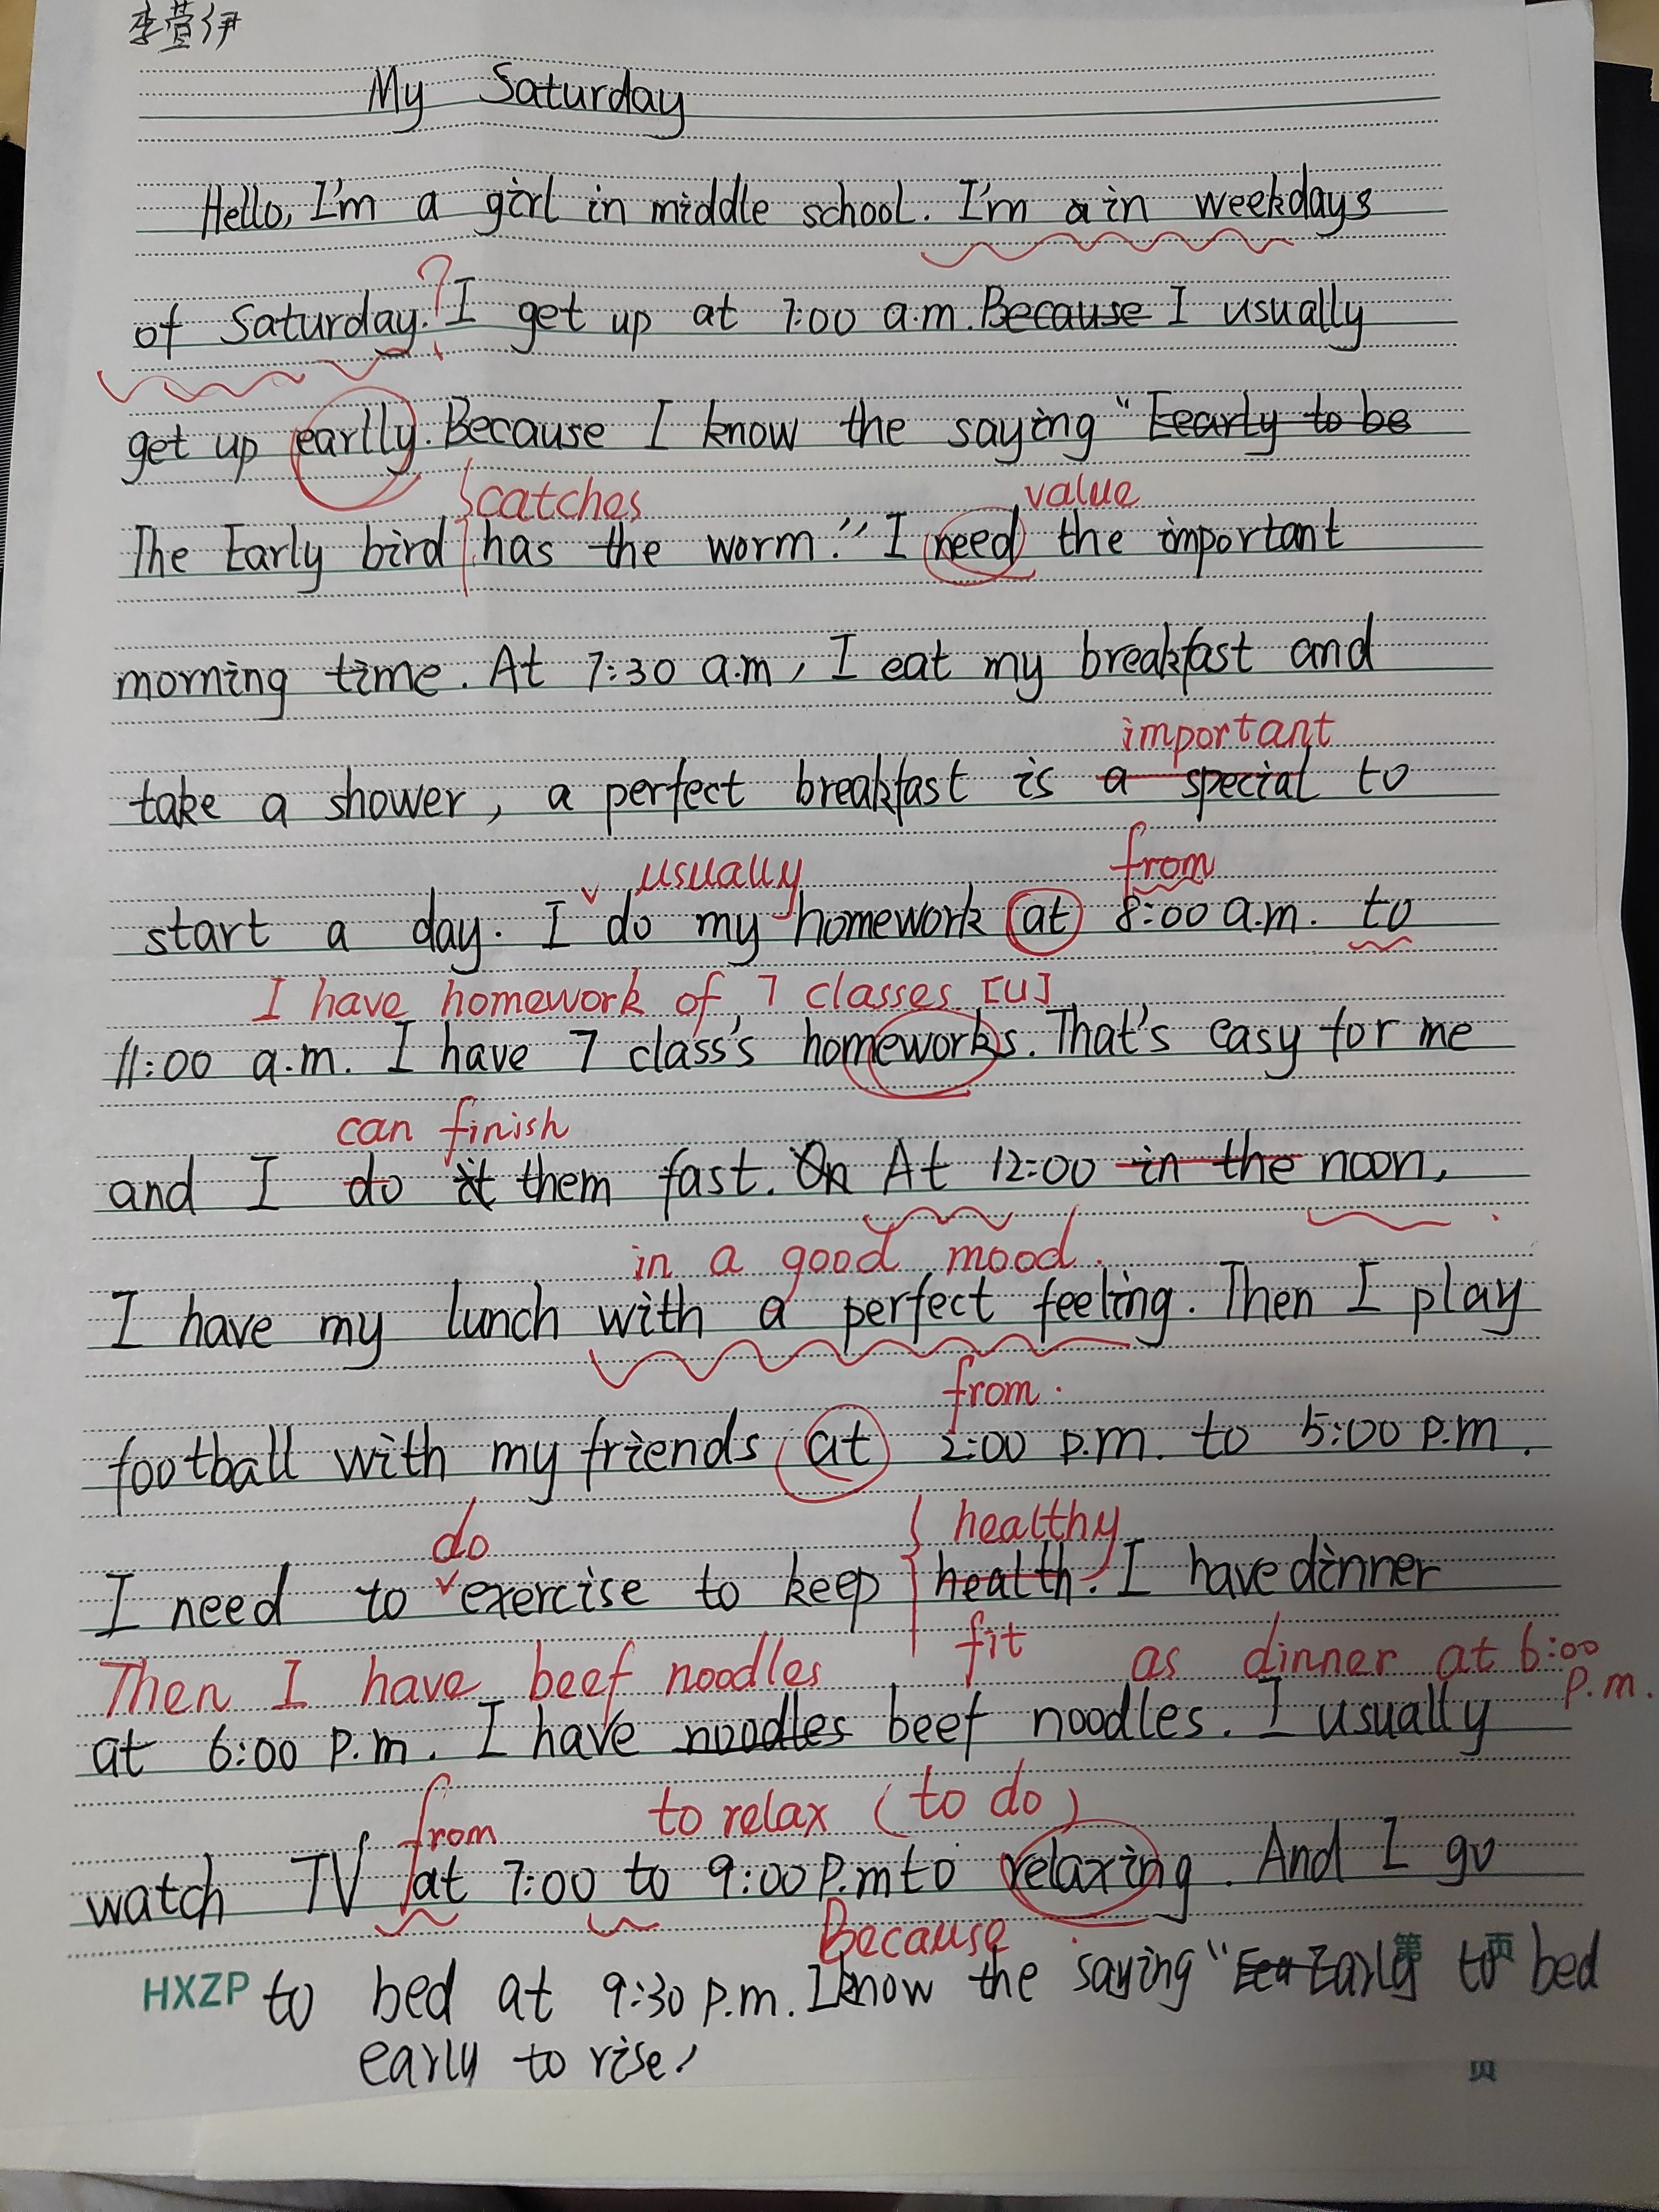 李萱伊
My Saturday
Hello, I'm a girl in middle school. I'm a in weekdays
?
of Saturday. I get up at 7:00 a.m. Because I usually
get up eartly. Because I know the saying “Eearly to be
catches value
The Early bird has the worm.” I need the important
morning time. At 7:30 a.m, I eat my breakfast and
important
take a shower, a perfect breakfast is a special to
usually from
start a day. I do my homework at 8:00 a.m. to
I have homework of 7 classes [U]
11:00 a.m. I have 7 class's homeworks. That's easy for me
can finish
and I do it them fast. On At 12:00 in the noon,
in a good mood.
I have my lunch with a perfect feeling. Then I play
from
football with my friends at 2:00 p.m. to 5:00 p.m.
do healthy
I need to exercise to keep health. I have dinner
fit
Then I have beef noodles as dinner at 6:00 p.m.
at 6:00 p.m. I have noodles beef noodles. I usually
from to relax (to do)
watch TV at 7:00 to 9:00 p.m to relaxing. And I go
Because
HXZP to bed at 9:30 p.m. I know the saying “Ear Early to bed
第 页
early to rise,
页